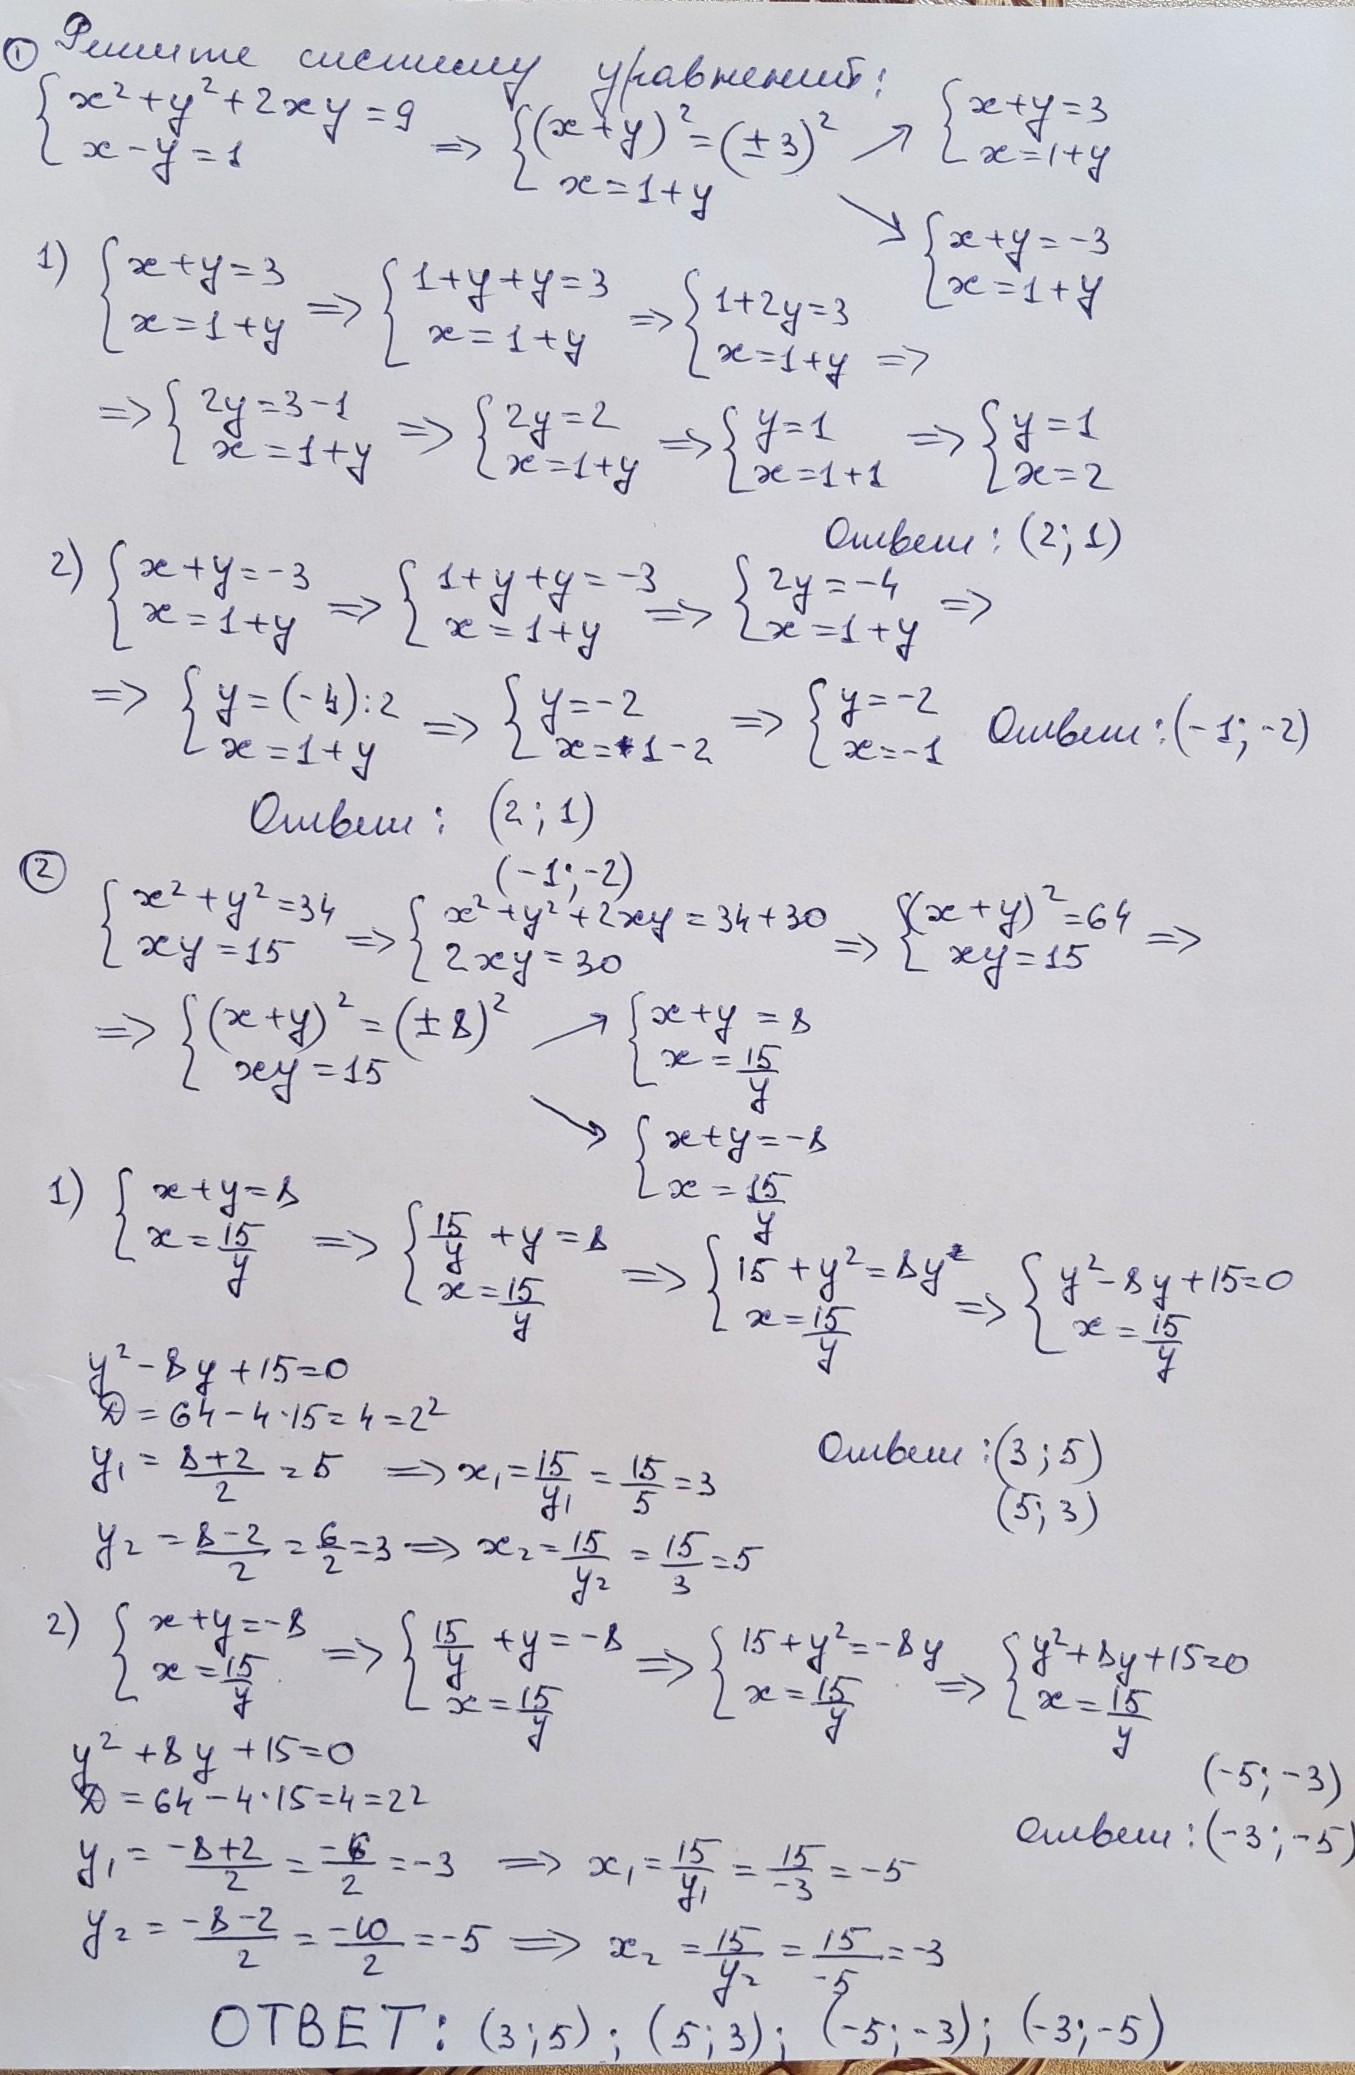 ① Решите систему уравнений:
{ x² + y² + 2xy = 9 ; x - y = 1 => { (x + y)² = (±3)² ; x = 1 + y ↗ { x + y = 3 ; x = 1 + y
↘ { x + y = -3 ; x = 1 + y
1) { x + y = 3 ; x = 1 + y => { 1 + y + y = 3 ; x = 1 + y => { 1 + 2y = 3 ; x = 1 + y =>
=> { 2y = 3 - 1 ; x = 1 + y => { 2y = 2 ; x = 1 + y => { y = 1 ; x = 1 + 1 => { y = 1 ; x = 2
Ответ: (2; 1)
2) { x + y = -3 ; x = 1 + y => { 1 + y + y = -3 ; x = 1 + y => { 2y = -4 ; x = 1 + y =>
=> { y = (-4):2 ; x = 1 + y => { y = -2 ; x = 1 - 2 => { y = -2 ; x = -1 Ответ: (-1; -2)
Ответ: (2; 1)
(-1; -2)
② { x² + y² = 34 ; xy = 15 => { x² + y² + 2xy = 34 + 30 ; 2xy = 30 => { (x + y)² = 64 ; xy = 15 =>
=> { (x + y)² = (±8)² ; xy = 15 ↗ { x + y = 8 ; x = 15/y
↘ { x + y = -8 ; x = 15/y
1) { x + y = 8 ; x = 15/y => { 15/y + y = 8 ; x = 15/y => { 15 + y² = 8y ; x = 15/y => { y² - 8y + 15 = 0 ; x = 15/y
y² - 8y + 15 = 0
D = 64 - 4·15 = 4 = 2²
y₁ = (8 + 2)/2 = 5 => x₁ = 15/y₁ = 15/5 = 3 Ответ: (3; 5)
(5; 3)
y₂ = (8 - 2)/2 = 6/2 = 3 => x₂ = 15/y₂ = 15/3 = 5
2) { x + y = -8 ; x = 15/y => { 15/y + y = -8 ; x = 15/y => { 15 + y² = -8y ; x = 15/y => { y² + 8y + 15 = 0 ; x = 15/y
y² + 8y + 15 = 0
D = 64 - 4·15 = 4 = 2²
(-5; -3)
Ответ: (-3; -5)
y₁ = (-8 + 2)/2 = -6/2 = -3 => x₁ = 15/y₁ = 15/-3 = -5
y₂ = (-8 - 2)/2 = -10/2 = -5 => x₂ = 15/y₂ = 15/-5 = -3
ОТВЕТ: (3; 5); (5; 3); (-5; -3); (-3; -5)